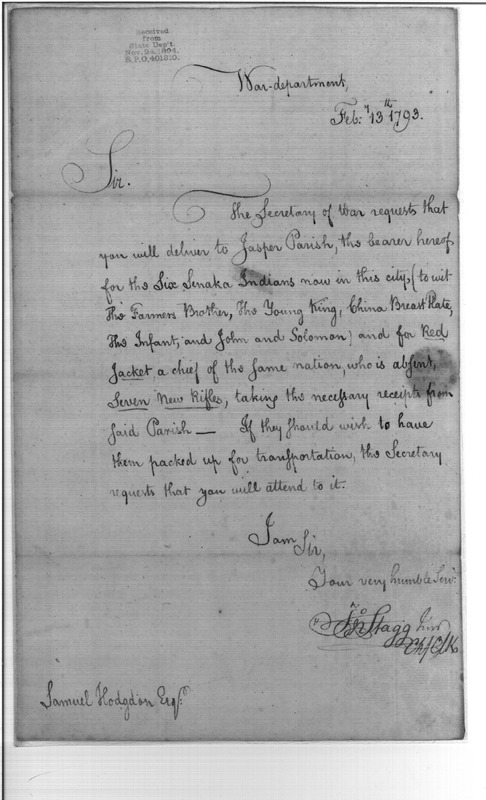 Received
from
State Dep't.
Nov. 24, 1894.
R.P.O. 401810.
War-department,
Feb:y 13th 1793.
Sir.
The Secretary of War requests that
you will deliver to Jasper Parish, the bearer hereof
for the Six Senaka Indians now in this city, (to wit
The Farmers Brother, The Young King, China Breast Plate,
The Infant, and John and Solomon) and for Red
Jacket a chief of the same nation, who is absent,
Seven New Rifles, taking the necessary receipts from
said Parish — If they should wish to have
them packed up for transportation, the Secretary
requests that you will attend to it.
I am Sir,
Your very humble Serv:
Jno Stagg Junr
Chf Clk
Samuel Hodgdon Esqr.